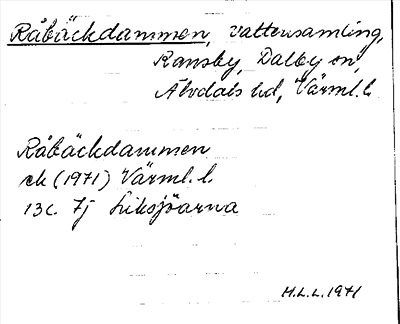 Råbäckdammen, vattensamling,
Ransby, Dalby sn,
Älvdals hd, Värml. l.
Råbäckdammen
ek (1971) Värml. l.
13C 7j Liksjöarna
H.L.L. 1971